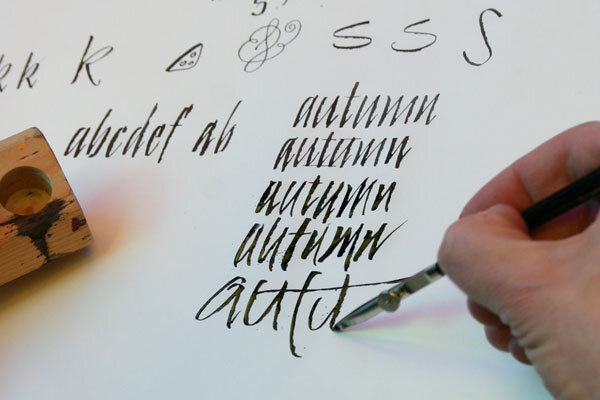 kk k S S S
abcdef ab autumn
autumn
autumn
autumn
autu